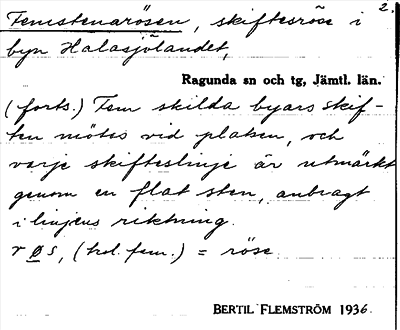 2.
Femstenarösen, skiftesrös i
byn Halasjölandet,
Ragunda sn och tg, Jämtl. län.
(forts.) Fem skilda byars skif-
ten mötes vid platsen, och
varje skifteslinje är utmärkt
genom en flat sten, anbragt
i linjens riktning.
r ø s, (kol. fem.) = röse
BERTIL FLEMSTRÖM 1936.